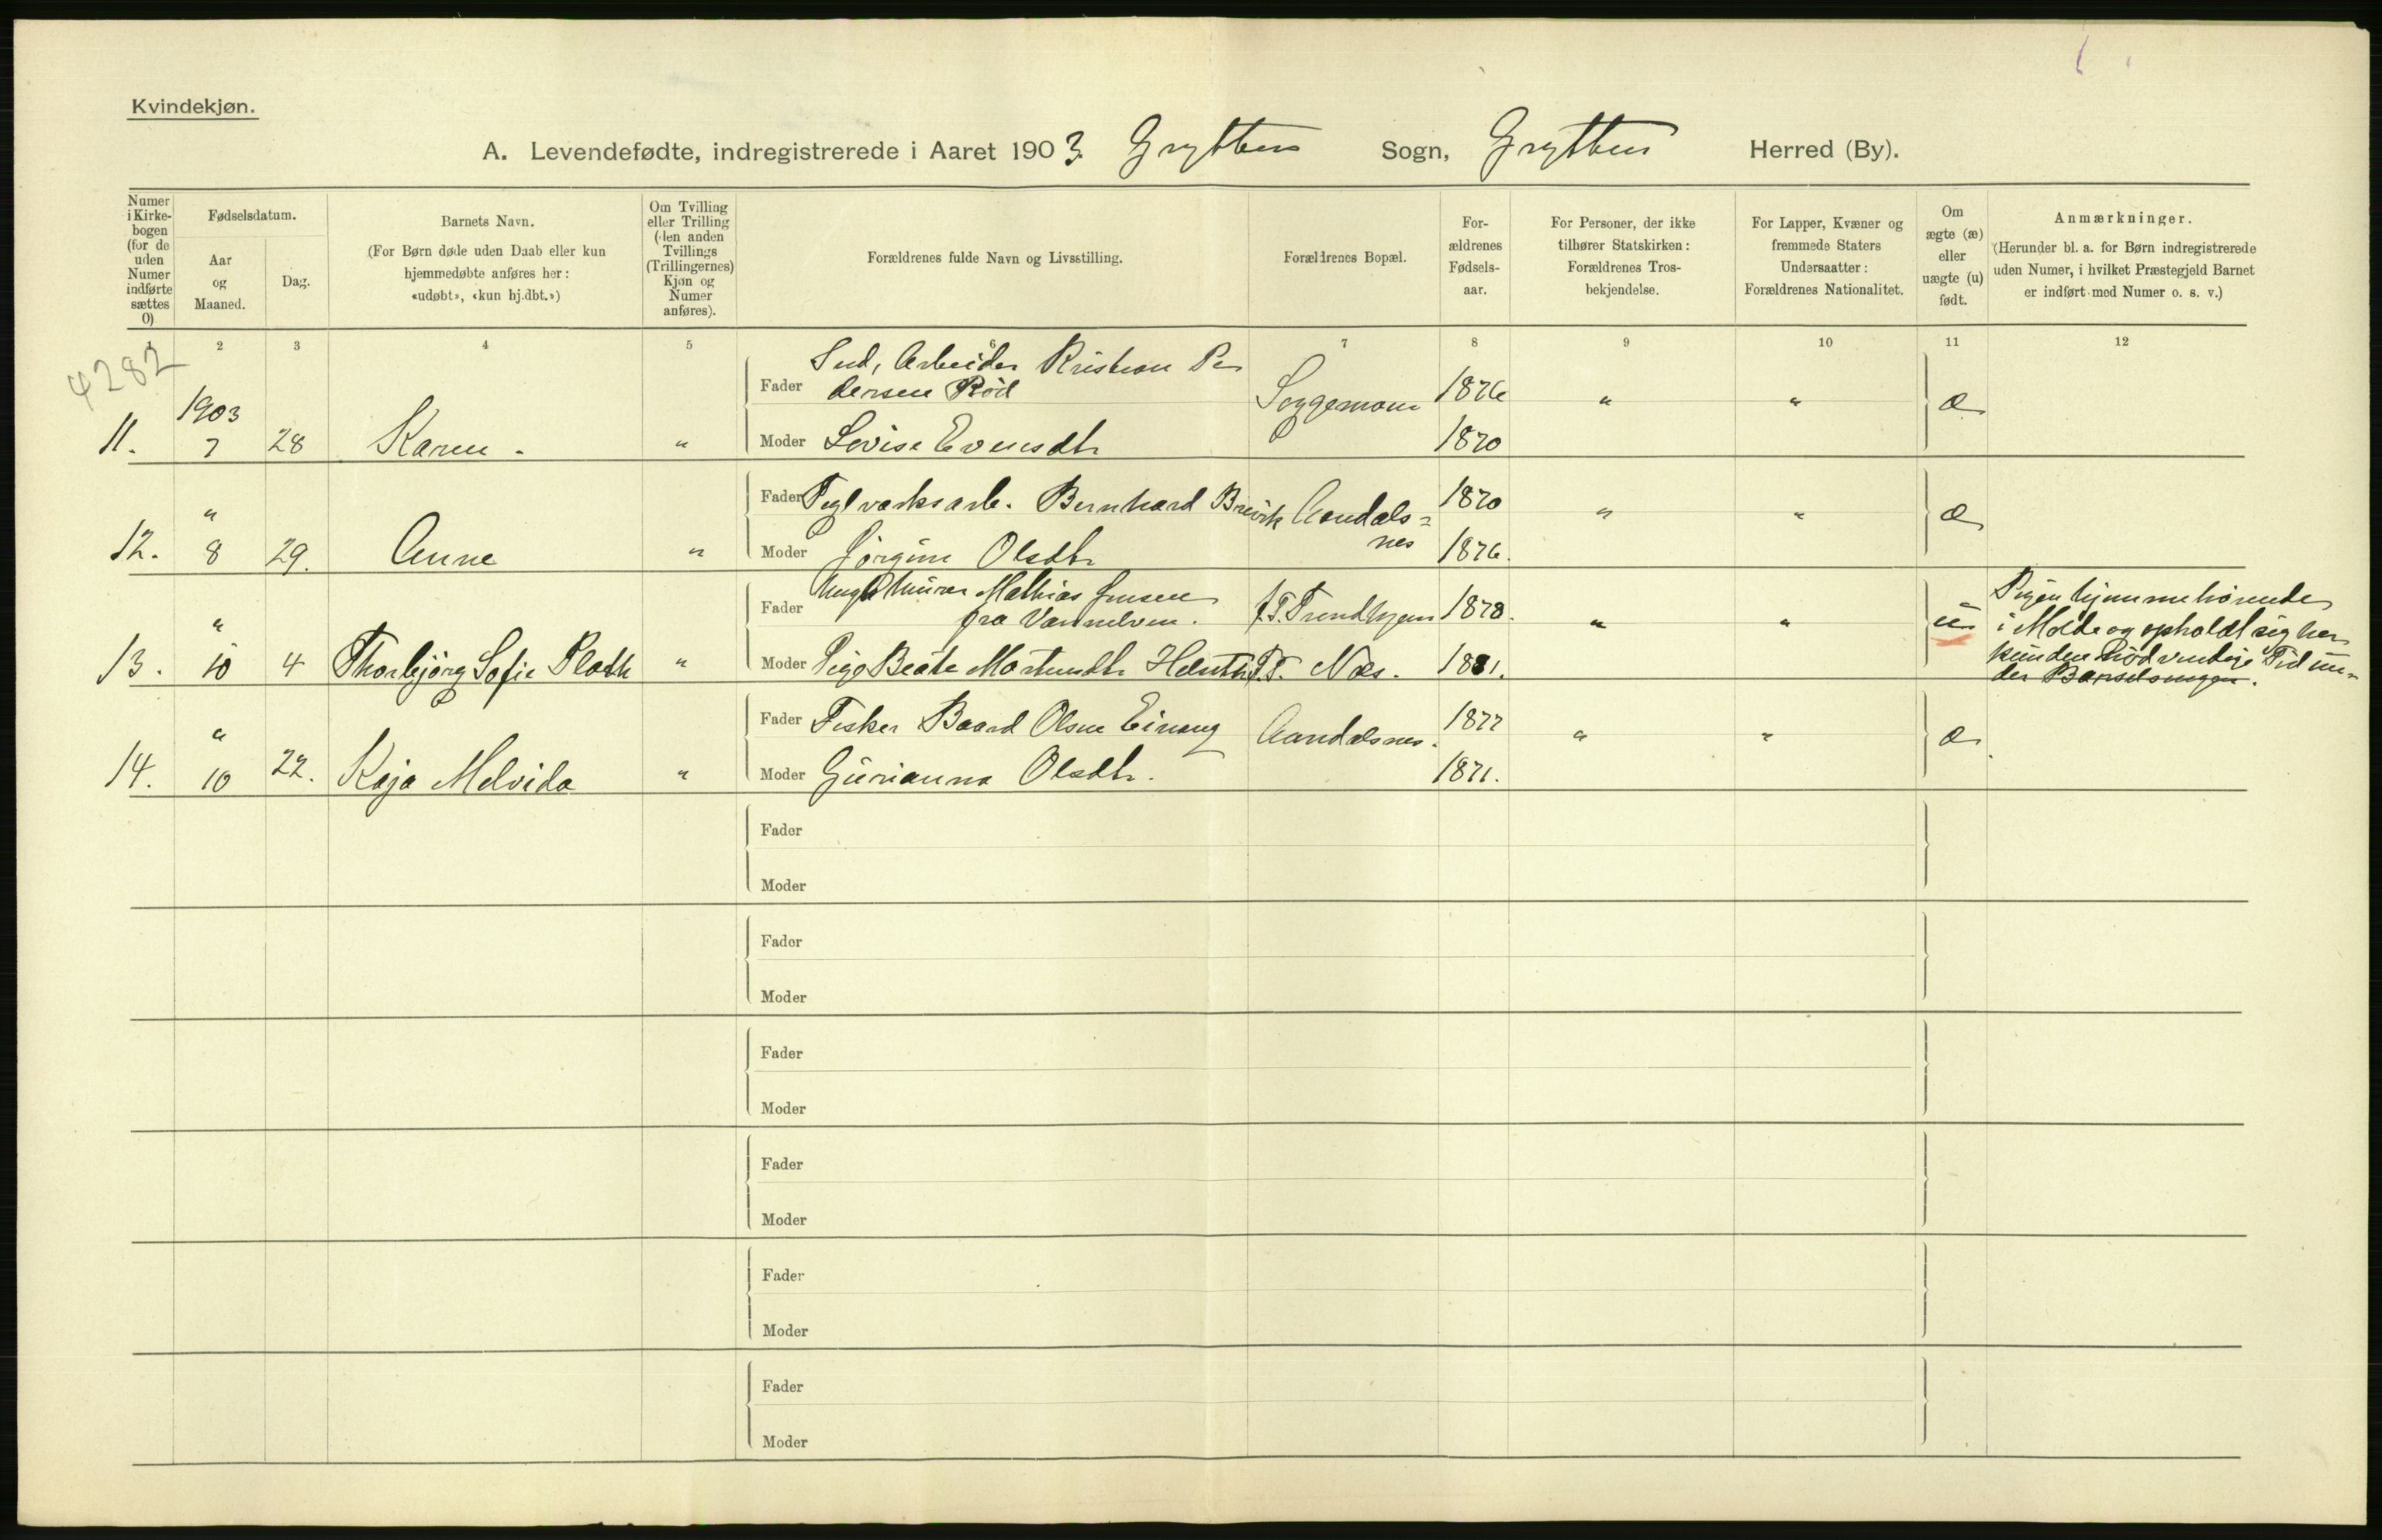 Kvindekjøn.
A. Levendefødte, indregistrerede i Aaret 1903. Gryttens Sogn, Gryttens Herred (By).
Numer i Kirkebogen (for de uden Numer indførte sættes 0)
Fødselsdatum.
Aar og Maaned.
Dag.
Barnets Navn.
(For Børn døde uden Daab eller kun hjemmedøbte anføres her: «udøbt», «kun hj.dbt.»)
Om Tvilling eller Trilling (den anden Tvillings (Trillingernes) Kjøn og Numer anføres).
Forældrenes fulde Navn og Livsstilling.
Forældrenes Bopæl.
Forældrenes Fødselsaar.
For Personer, der ikke tilhører Statskirken: Forældrenes Trosbekjendelse.
For Lapper, Kvæner og fremmede Staters Undersaatter: Forældrenes Nationalitet.
Om ægte (æ) eller uægte (u) født.
Anmærkninger.
(Herunder bl. a. for Børn indregistrerede uden Numer, i hvilket Præstegjeld Barnet er indført med Numer o. s. v.)
1 2 3 4 5 6 7 8 9 10 11 12
4282
Fader Ind, Arbeider Kristian Pe
dersen Rød Soggemoen 1876 " " æ
1903
11. 7 28 Karen. " Moder Lovise Evensdtr 1870
Fader Teglverksarb. Bernhard Brevik Aandals= 1870 " " æ
"
12. 8 29. Anne " Moder Jørgine Olsdtr nes 1876.
Fader Ungk Murer Mathias Jensen
fra Vannelven. f. T. Trondhjem 1878. " " u
"
13. 10 4 Thorbjørg Sofie Plath " Moder Pige Beate Mortensdtr T. Næs. 1881.
Pigen hjemmehørende
i Molde og opholdt sig her
kun den nødvendige Tid un-
der Barselsengen.
Fader Fisker Baard Olsen Einang Aandalsnes. 1877 " " æ
"
14. 10 22. Kaja Melvida " Moder Gurianna Olsdtr. 1871.
Fader
Moder
Fader
Moder
Fader
Moder
Fader
Moder
Fader
Moder
Fader
Moder